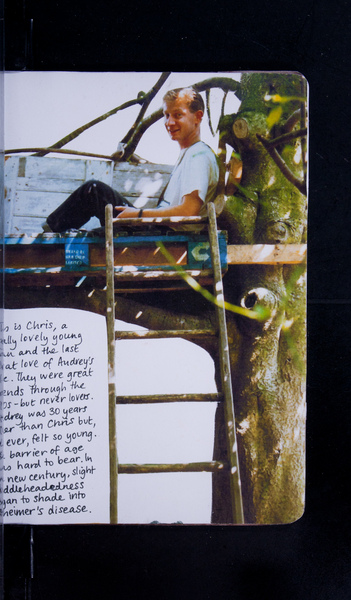 is is Chris, a
ally lovely young
an and the last
eat love of Audrey's
e. They were great
ends through the
0s - but never lovers.
drey was 30 years
er than Chris but,
ever, felt so young.
barrier of age
s hard to bear. In
new century, slight
ddleheadedness
gan to shade into
heimer's disease.